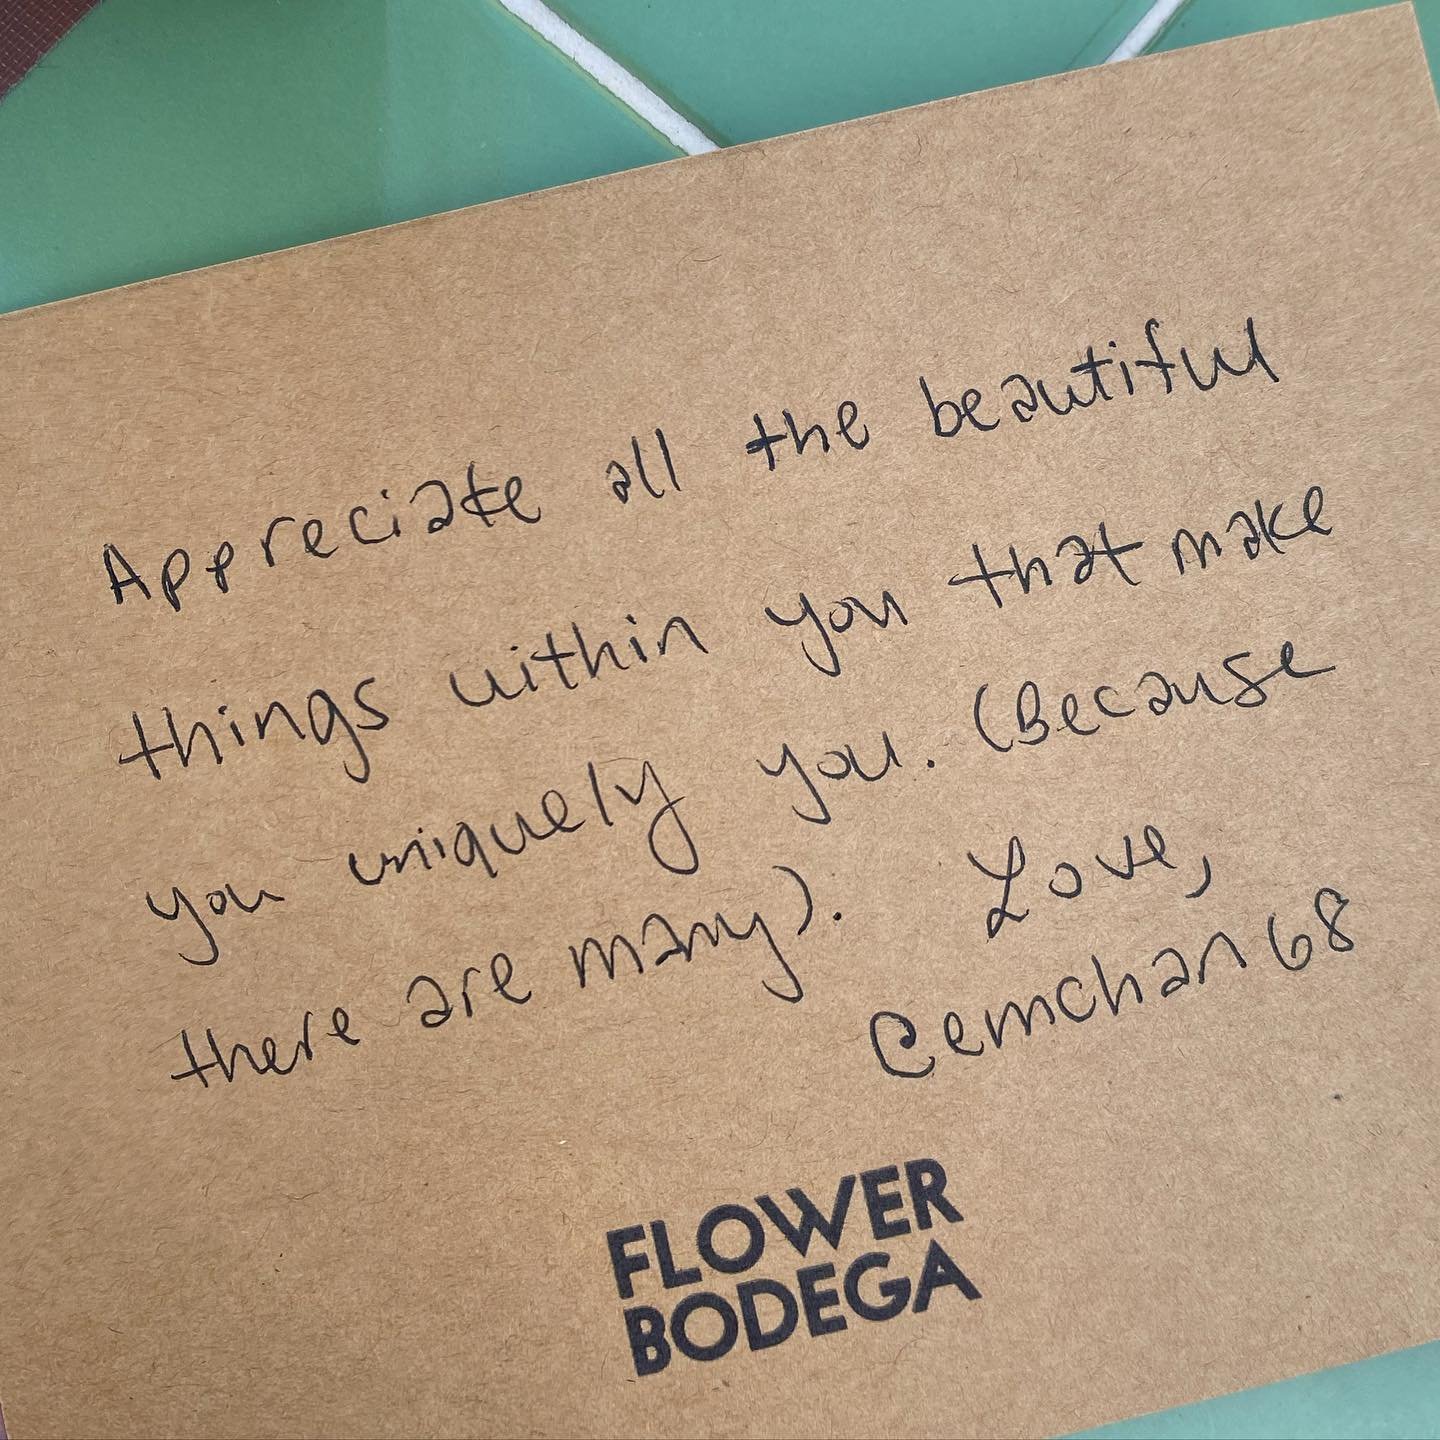 Appreciate all the beautiful
things within you that make
you uniquely you. (Because
there are many). Love,
Cemchan68
FLOWER
BODEGA